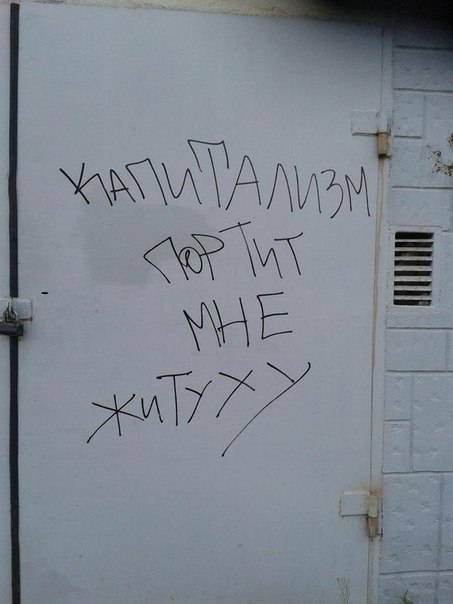 КАПИТАЛИЗМ
ПОРТИТ
МНЕ
ЖИТУХУ